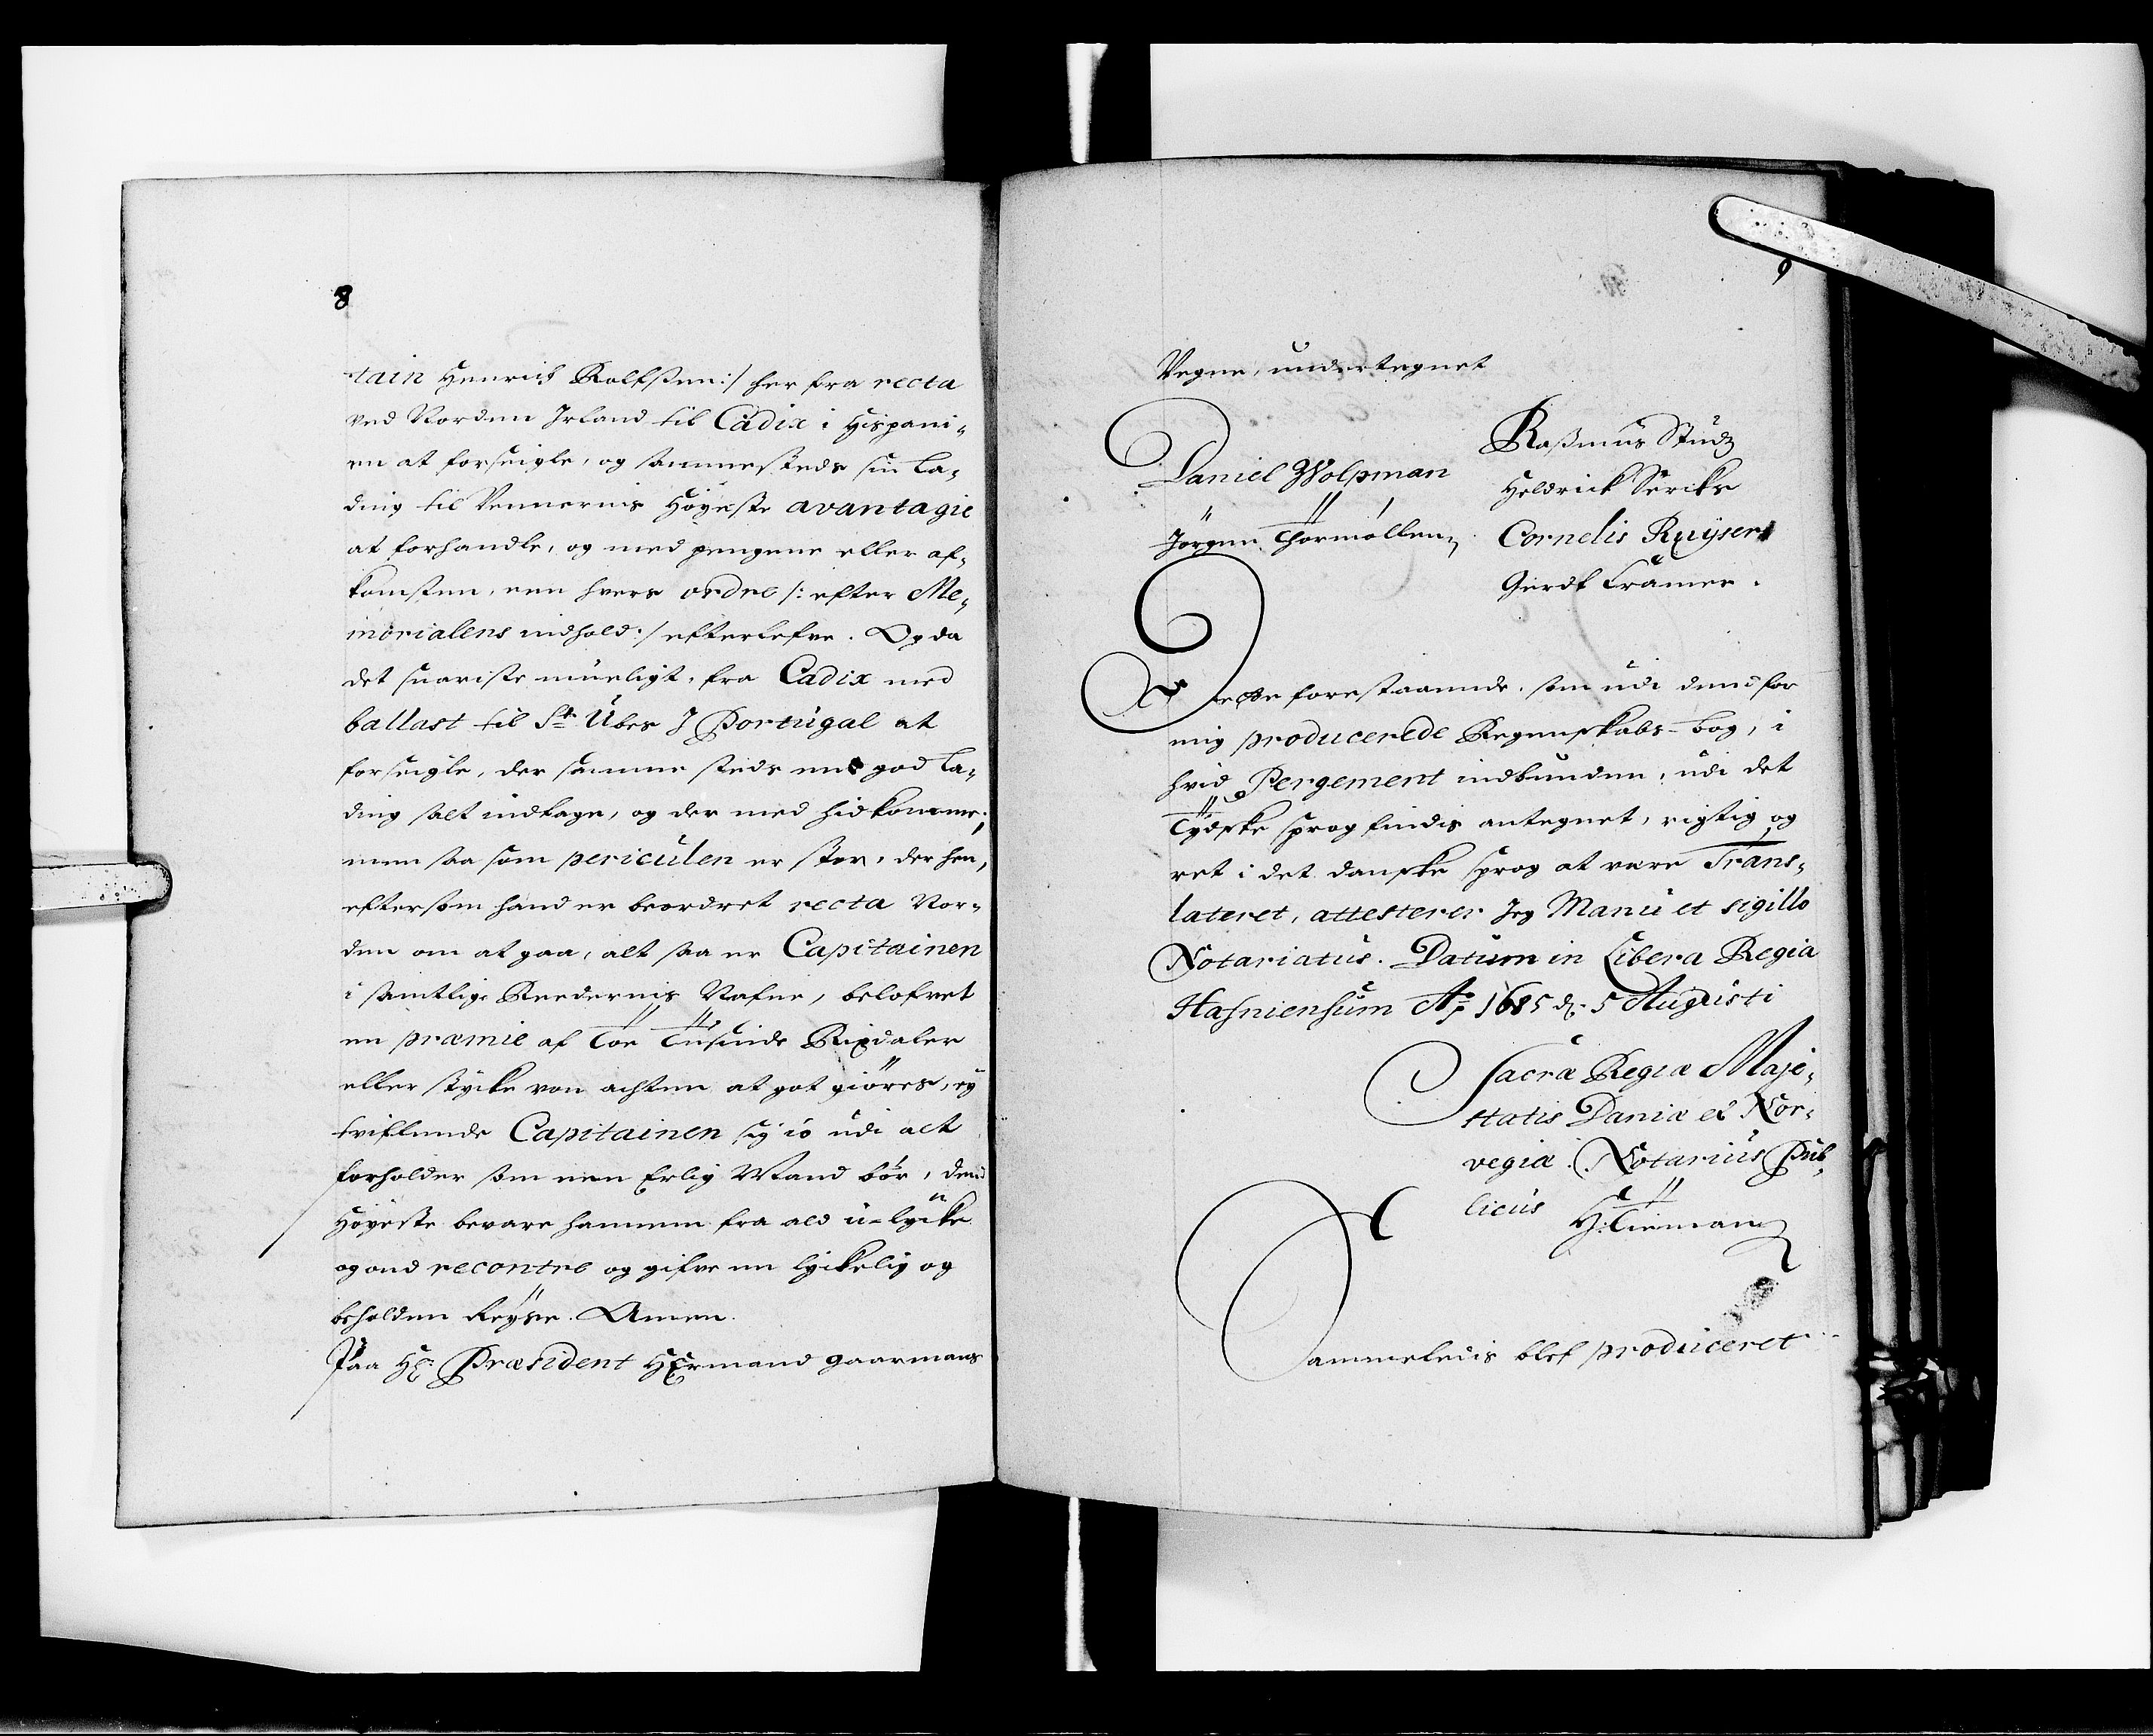 8
tain Henrich Rolfsten:/ her fra recta
ved Norden Jrland til Cadix i Hispani-
en at forseigle, og sammesteds sin La-
ding til Vennernis Høyeste avantagie
at forhandle, og med pengene eller af-
komsten, een hvers ordre /: efter Me-
morialens indhold :/ efterlefve. Og da
det snariste mueligt, fra Cadix med
ballast til St. Ubes J Portugal at
forseigle, der samme steds en god La-
ding salt indtage, og der med hidkomme;
men saa som periculen er stor, der hen,
eftersom hand er beordret recta Nor-
den om at gaa, alt saa er Capitainen
i samtlige Reedernis Nafne, belofvet
en præmie af Toe Tusinde Rixdaler
eller stycke von achten at got giøres, ey
tviflende Capitainen sig io udi alt
forholder som een Erlig Mand bør, dend
Høyeste bevare hannem fra ald u-lycke
og ond recontre og gifve en lyckelig og
beholden Reyse. Amen.
Paa Hr. Præsident Hermand gaarmans
9
Vegne, undertegnet
Daniel Wolpman
Rasmus Studz
Heldrick Sericke
Jørgen Thormøllen
Cornelis Ruyser
Gerdt Cramer.
At dette forestaaende, som udi dend for
mig producerede Regenskabs-bog, i
hvid Pergement indbunden, udi det
Tydske sprog findis antegnet, rigtig og
ret i det danske sprog at være Trans-
lateret, attesterer Jeg Manu et sigillo
Notariatus. Datum in Libera Regia
Hafniensium Ao. 1685 d. 5 Augusti
Sacræ Regiæ Maje-
statis Daniæ et Nor-
vegiæ. Notarius Pub-
licus
H: Tieman
Sammeledis blef produceret